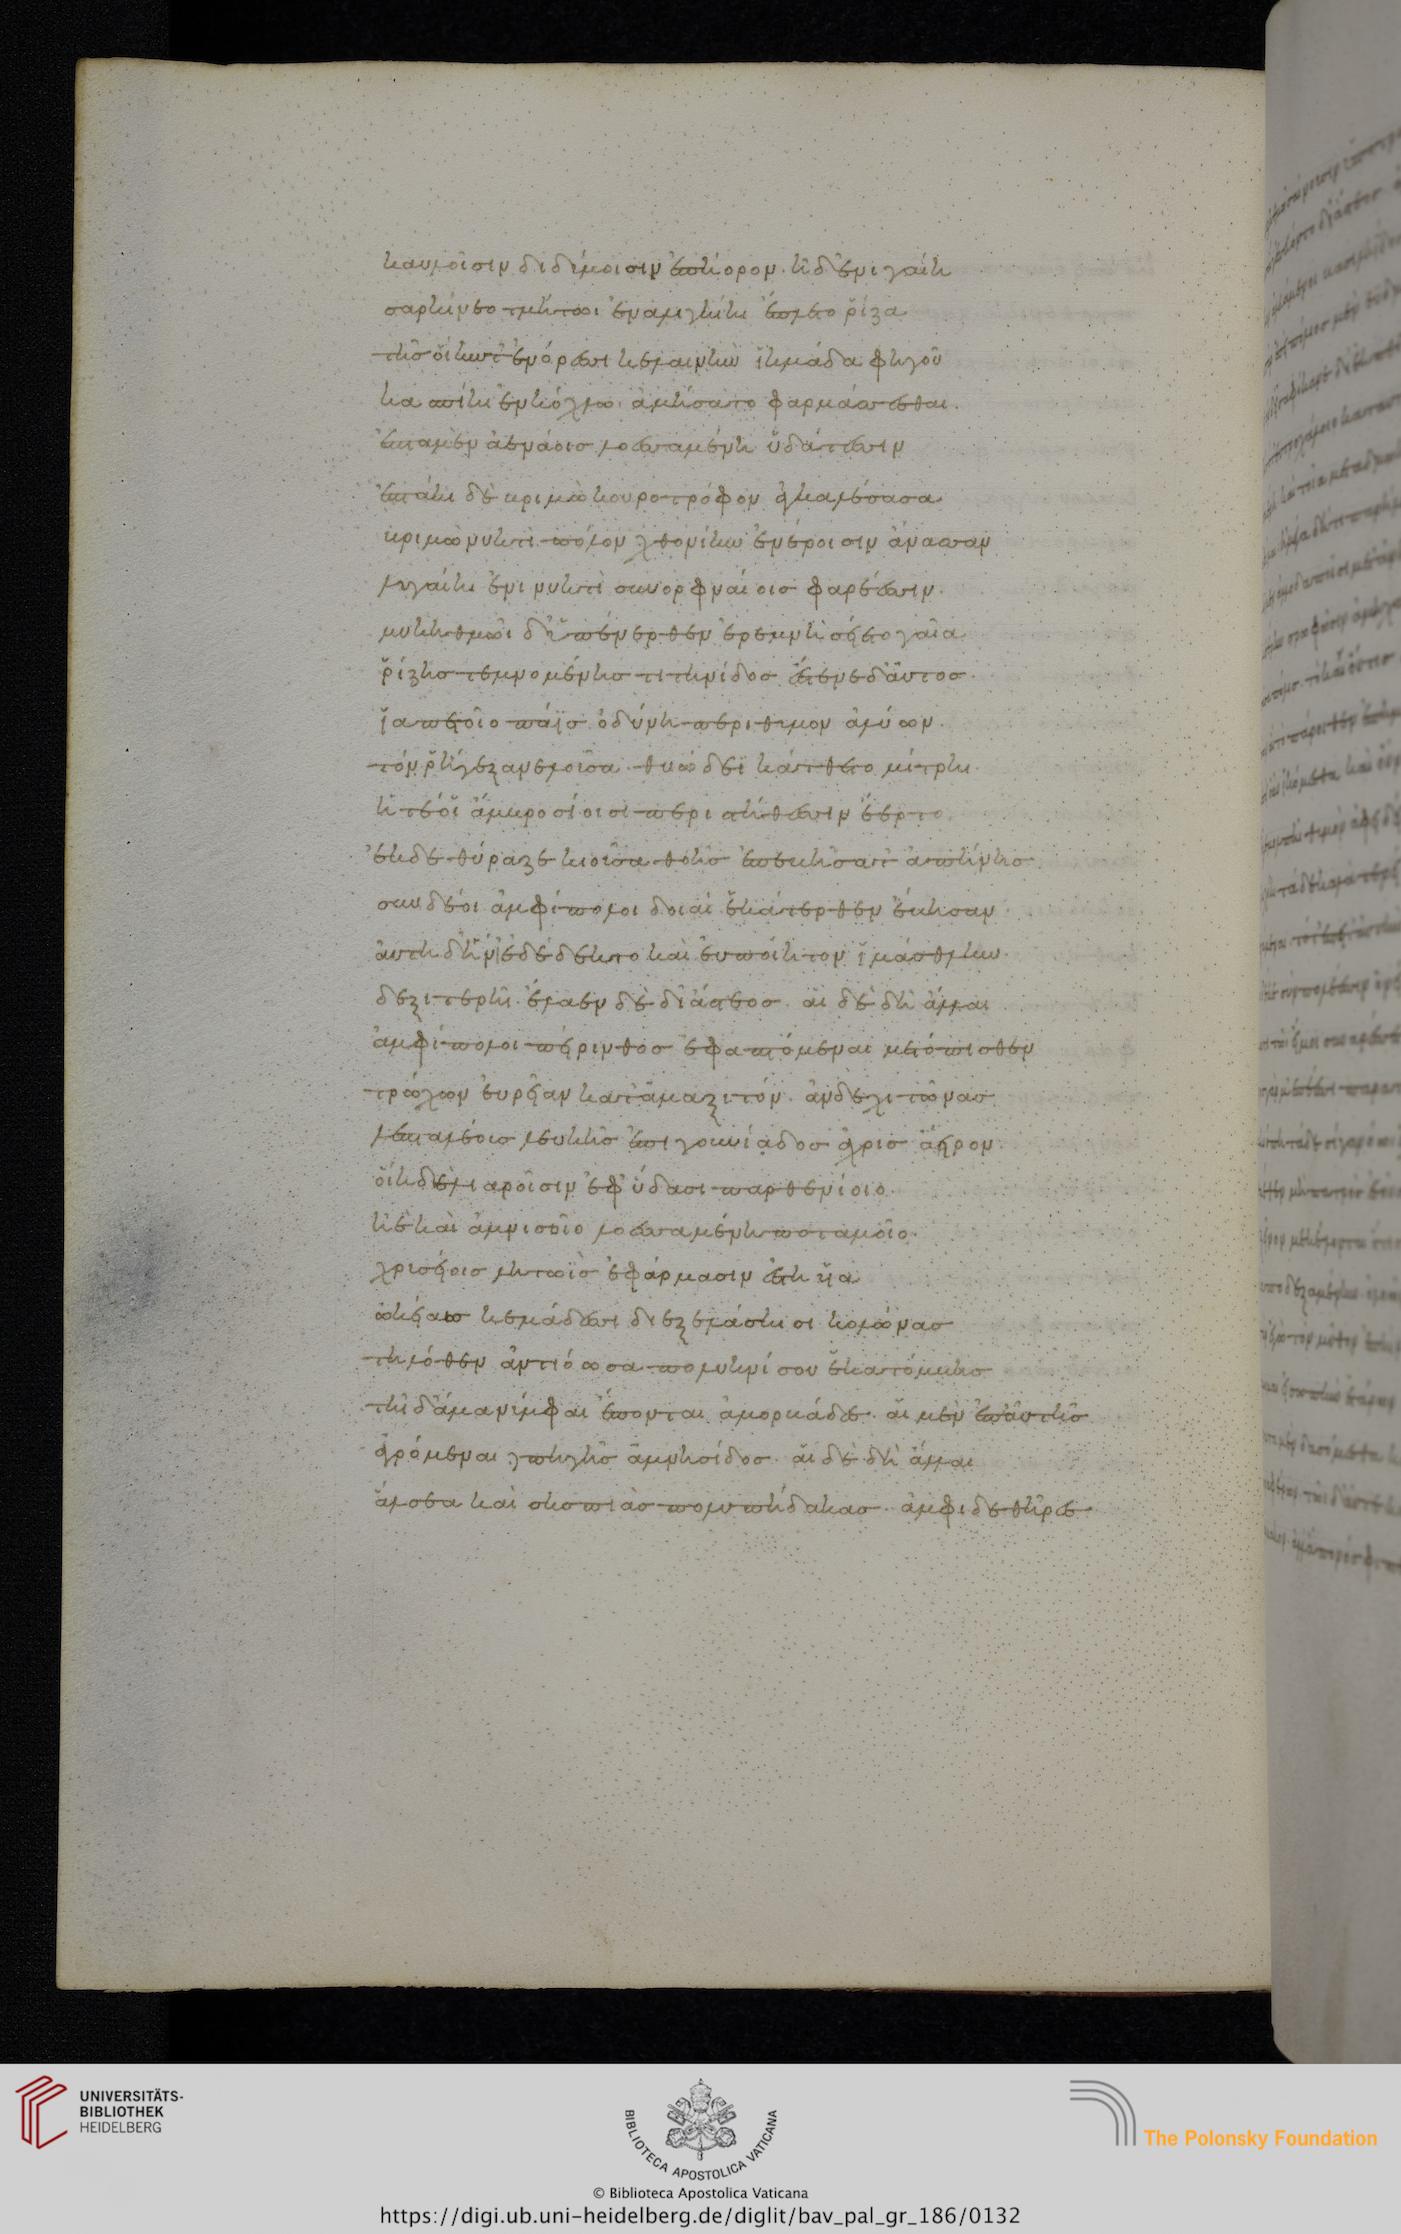 καυλοῖσιν διδύμοισιν ἐπήορον. ἡ δ' ἐνὶ γαίη
σαρκὶ νεοτμήτωι ἐναλιγκίη ἔπλετο ῥίζα
τῆς οἵην τ' ἐν ὄρεσσι κελαινὴν ἰκμάδα φηγοῦ
κασπίη ἐν κόχλω ἀμήσατο φαρμάσσεσθαι.
ἑπτὰ μὲν ἀενάοισι λοεσσαμένη ὑδάτεσσιν
ἑπτάκι δὲ βριμὼ κουροτρόφον ἀγκαλέσασα
βριμὼ νυκτιπόλον χθονίην ἐνέροισιν ἄνασσαν
λυγαίη ἐνὶ νυκτὶ σὺν ὀρφναίοις φαρέεσσιν.
μυκηθμῶι δ' ὑπένερθεν ἐρεμνὴ σείετο γαῖα
ῥίζης τεμνομένης τιτηνίδος ἔστενε δ' αὐτὸς
ἰαπετοῖο πάϊς ὀδύνη πέρι θυμὸν ἀλύων.
τόν ῥ' ἥγ' ἐξανελοῦσα θυώδεϊ κάτθετο μίτρη.
ἥ τέ οἱ ἀμβροσίοισι περὶ στήθεσσιν ἔερτο
ἐκ δὲ θύραζε κιοῦσα θοῆς ἐπεβήσατ' ἀπήνης
σὺν δέ οἱ ἀμφίπολοι δοιαὶ ἑκάτερθεν ἔβησαν
αὐτὴ δ' ἡνί' ἔδεκτο καὶ εὐποίητον ἱμάσθλην
δεξιτερῆ. ἔλαεν δὲ δι' ἄστεος. αἱ δὲ δὴ ἄλλαι
ἀμφίπολοι πείρινθος ἐφαπτόμεναι μετόπισθεν
τρώχων εὐρεῖαν κατ' ἀμαξιτόν. ἂν δὲ χιτῶνας
λεπταλέους λευκῆς ἐπιγουνίδος ἄχρις ἄειρον.
οἵη δὲ λιαροῖσιν ἐφ' ὕδασι παρθενίοιο
ἠὲ καὶ ἀμνισοῖο λοεσσαμένη ποταμοῖο.
χρυσείοις λητωῒς ἐφ' ἅρμασιν ἑστηυῖα
ὠκείαις κεμάδεσσι διεξελάσῃσι κολώνας
τηλόθεν ἀντιόωσα πολυκνίσου ἑκατόμβης
τῆ δ' ἅμα νύμφαι ἕπονται ἀμορβάδες. αἱ μὲν ἐπ' αὐτῆς
ἀγρόμεναι πηγῆς ἀμνησίδος. αἱ δὲ δὴ ἄλλαι
ἄλσεα καὶ σκοπιὰς πολυπίδακας. ἀμφὶ δὲ θῆρες
UNIVERSITÄTS-
BIBLIOTHEK
HEIDELBERG
BIBLIOTECA APOSTOLICA VATICANA
The Polonsky Foundation
© Biblioteca Apostolica Vaticana
https://digi.ub.uni-heidelberg.de/diglit/bav_pal_gr_186/0132